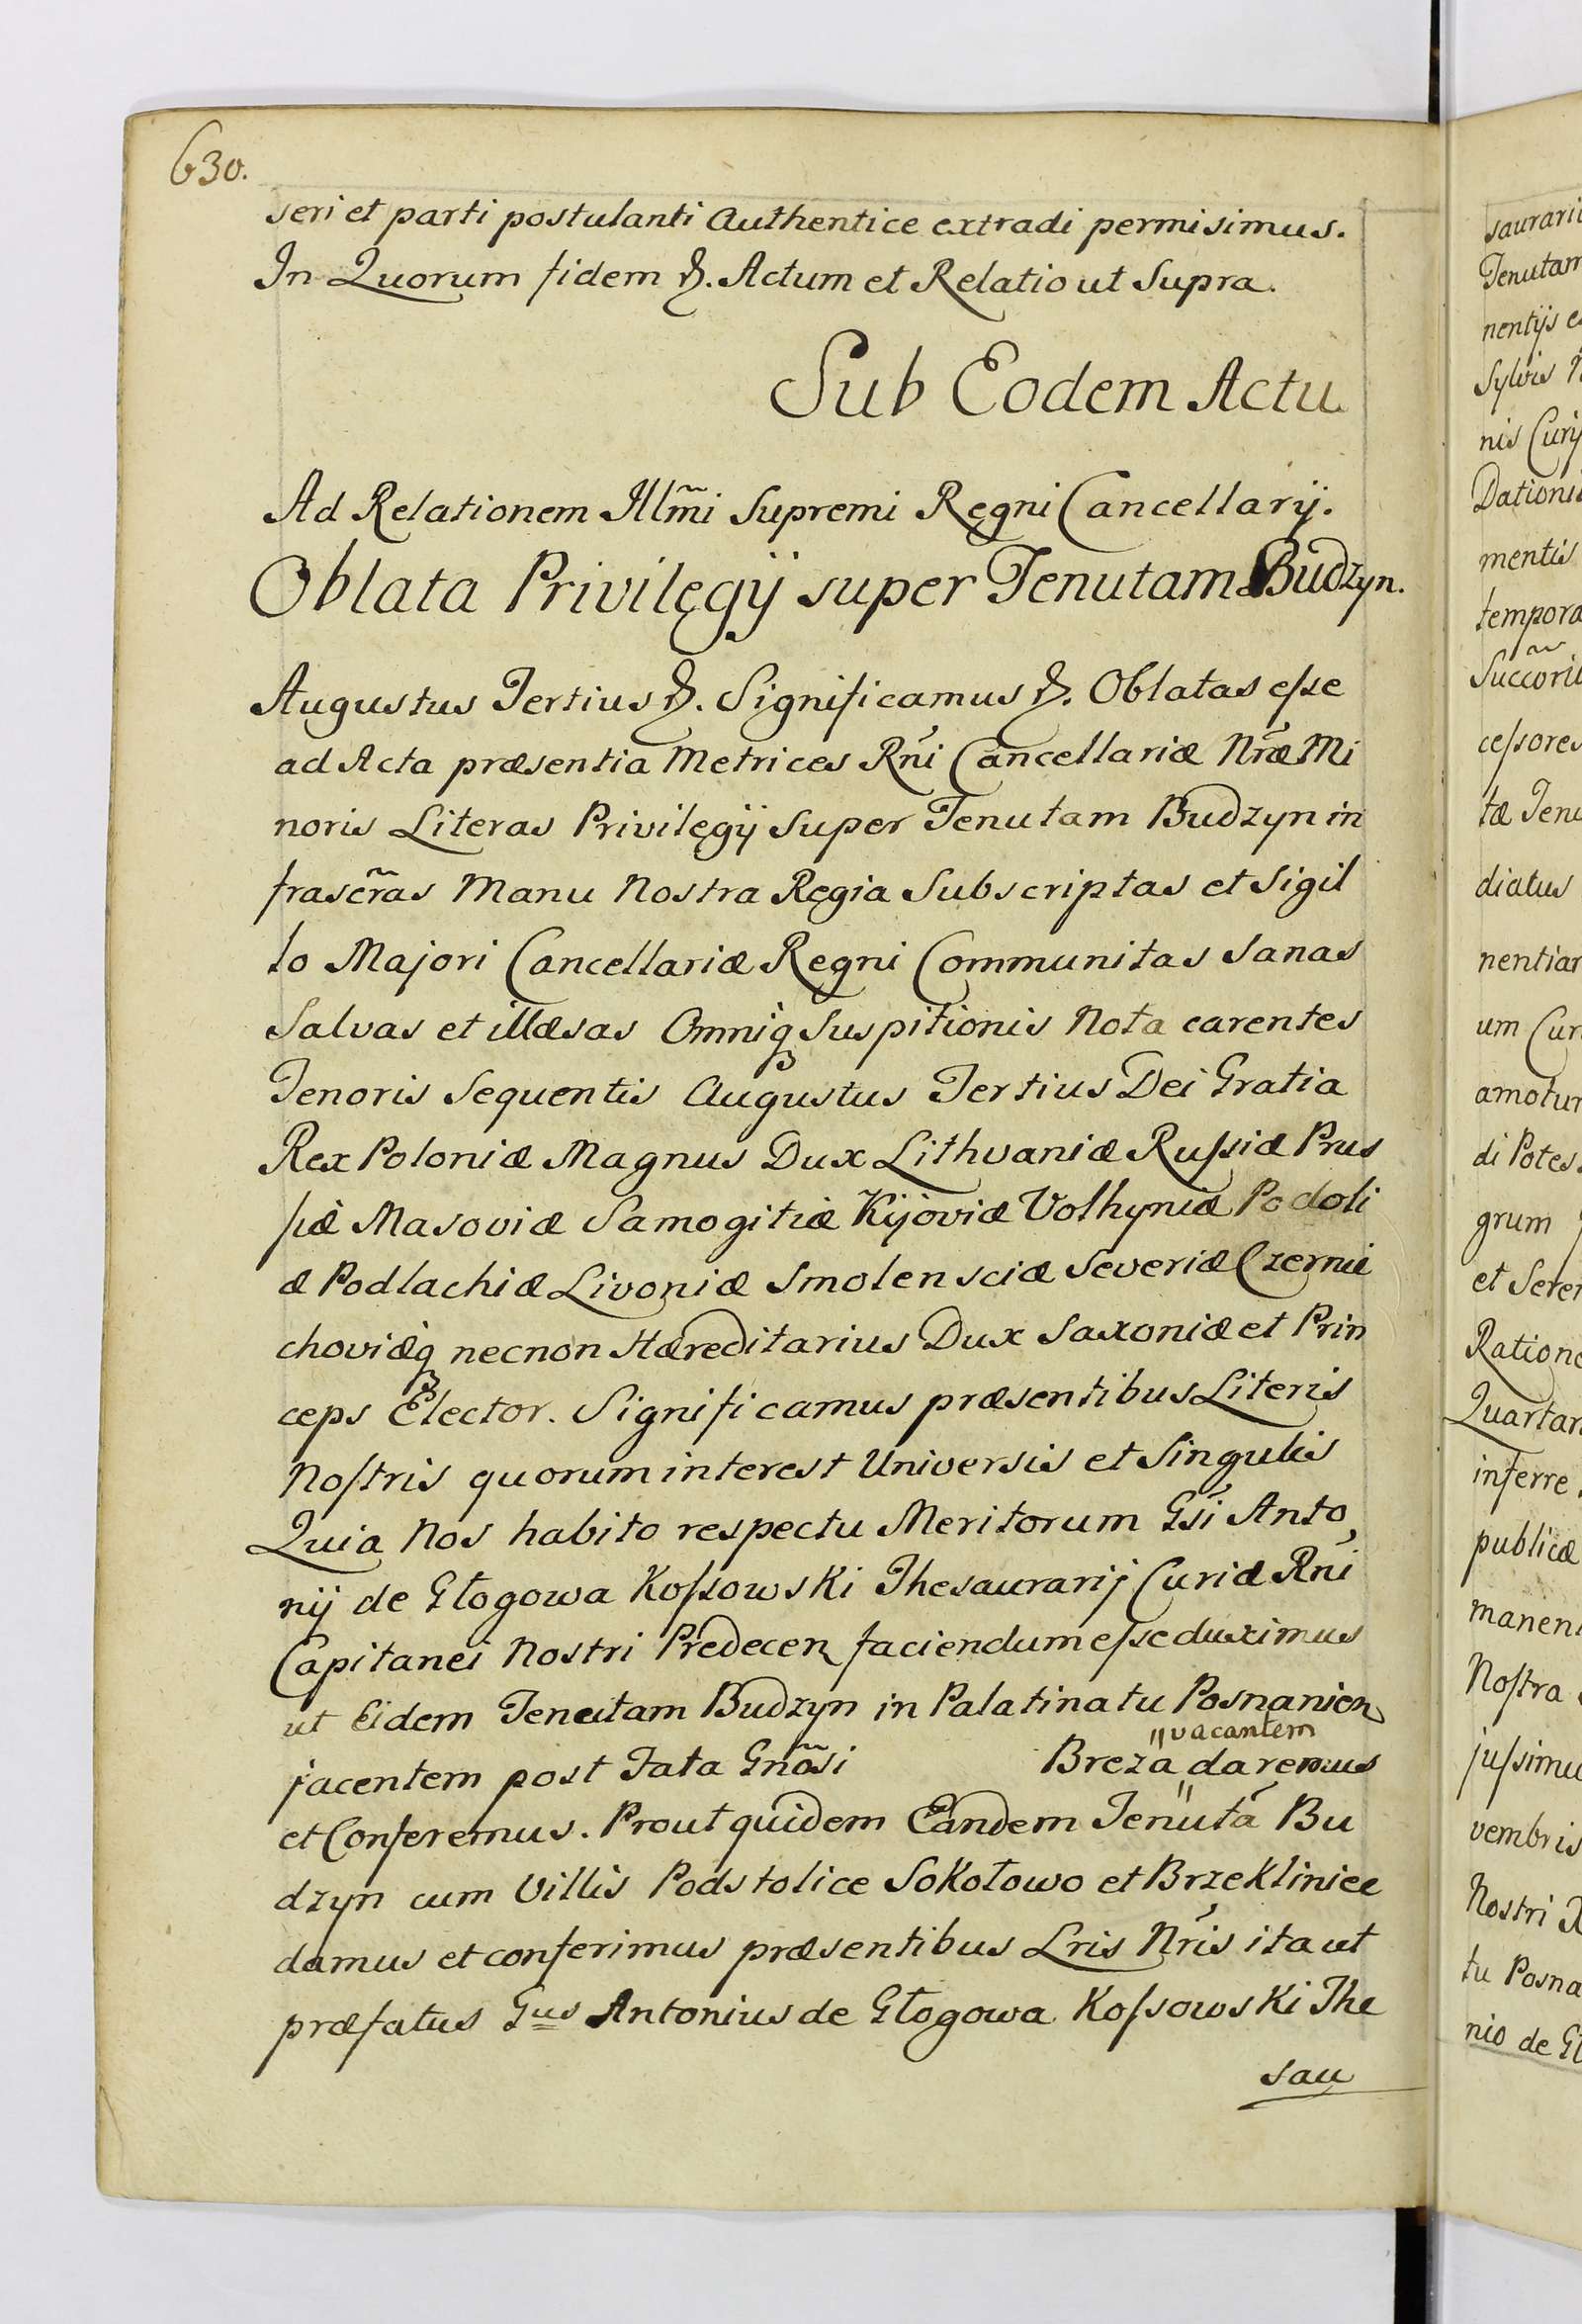 630.
seri et parti postulanti Authentice extradi permisimus.
In Quorum fidem &. Actum et Relatio ut Supra.
Sub Eodem Actu
Ad Relationem Illm̃i Supremi Regni Cancellarij.
Oblata Privilegij super Tenutam Budzyn.
Augustus Tertius &. Significamus &. Oblatas eſse
ad Acta præsentia Metrices Rńi Cancellariæ Nŕæ Mi
noris Literas Privilegij Super Tenutam Budzyn in
frascr̃as Manu Nostra Regia Subscriptas et Sigil
lo Majori Cancellariæ Regni Communitas Sanas
Salvas et illæsas Omniq; Suspitionis Nota carentes
Tenoris Sequentis Augustus Tertius Dei Gratia
Rex Poloniæ Magnus Dux Lithvaniæ Ruſsiæ Prus
ſiæ Masoviæ Samogitiæ Kijoviæ Volhyniæ Podoli
æ Podlachiæ Livoniæ Smolensciæ Severiæ Czernie
choviæq; necnon Hæreditarius Dux Saxoniæ et Prin
ceps Elector. Significamus præsentibus Literis
Noſtris quorum interest Universis et Singulis
Quia Nos habito respectu Meritorum Gśi Anto
nij de Głogowa Koſsowski Thesaurarij Curiæ Rńi
Capitanei Nostri Predecen faciendum eſse duximus
ut Eidem Tenutam Budzyn in Palatinatu Posnanien
jacentem post Fata Gnõsi Breza "vacantem" daremus
et Conferemus. Prout quidem Eandem Tenutá Bu
dzyn cum Villis Podstolice Sokołowo et Brzekliniec
damus et conferimus præsentibus Lris Nŕis ita ut
præfatus Gus Antonius de Głogowa Koſsowski The
sau
saurarii
Tenutam
nentijs
Sylvis
nis
mentis
tempora
ceſsores
tæ
diatus
um
di
grum
et
inferre
publicæ
Noſtra
vembris
Nostri
tu
nio de